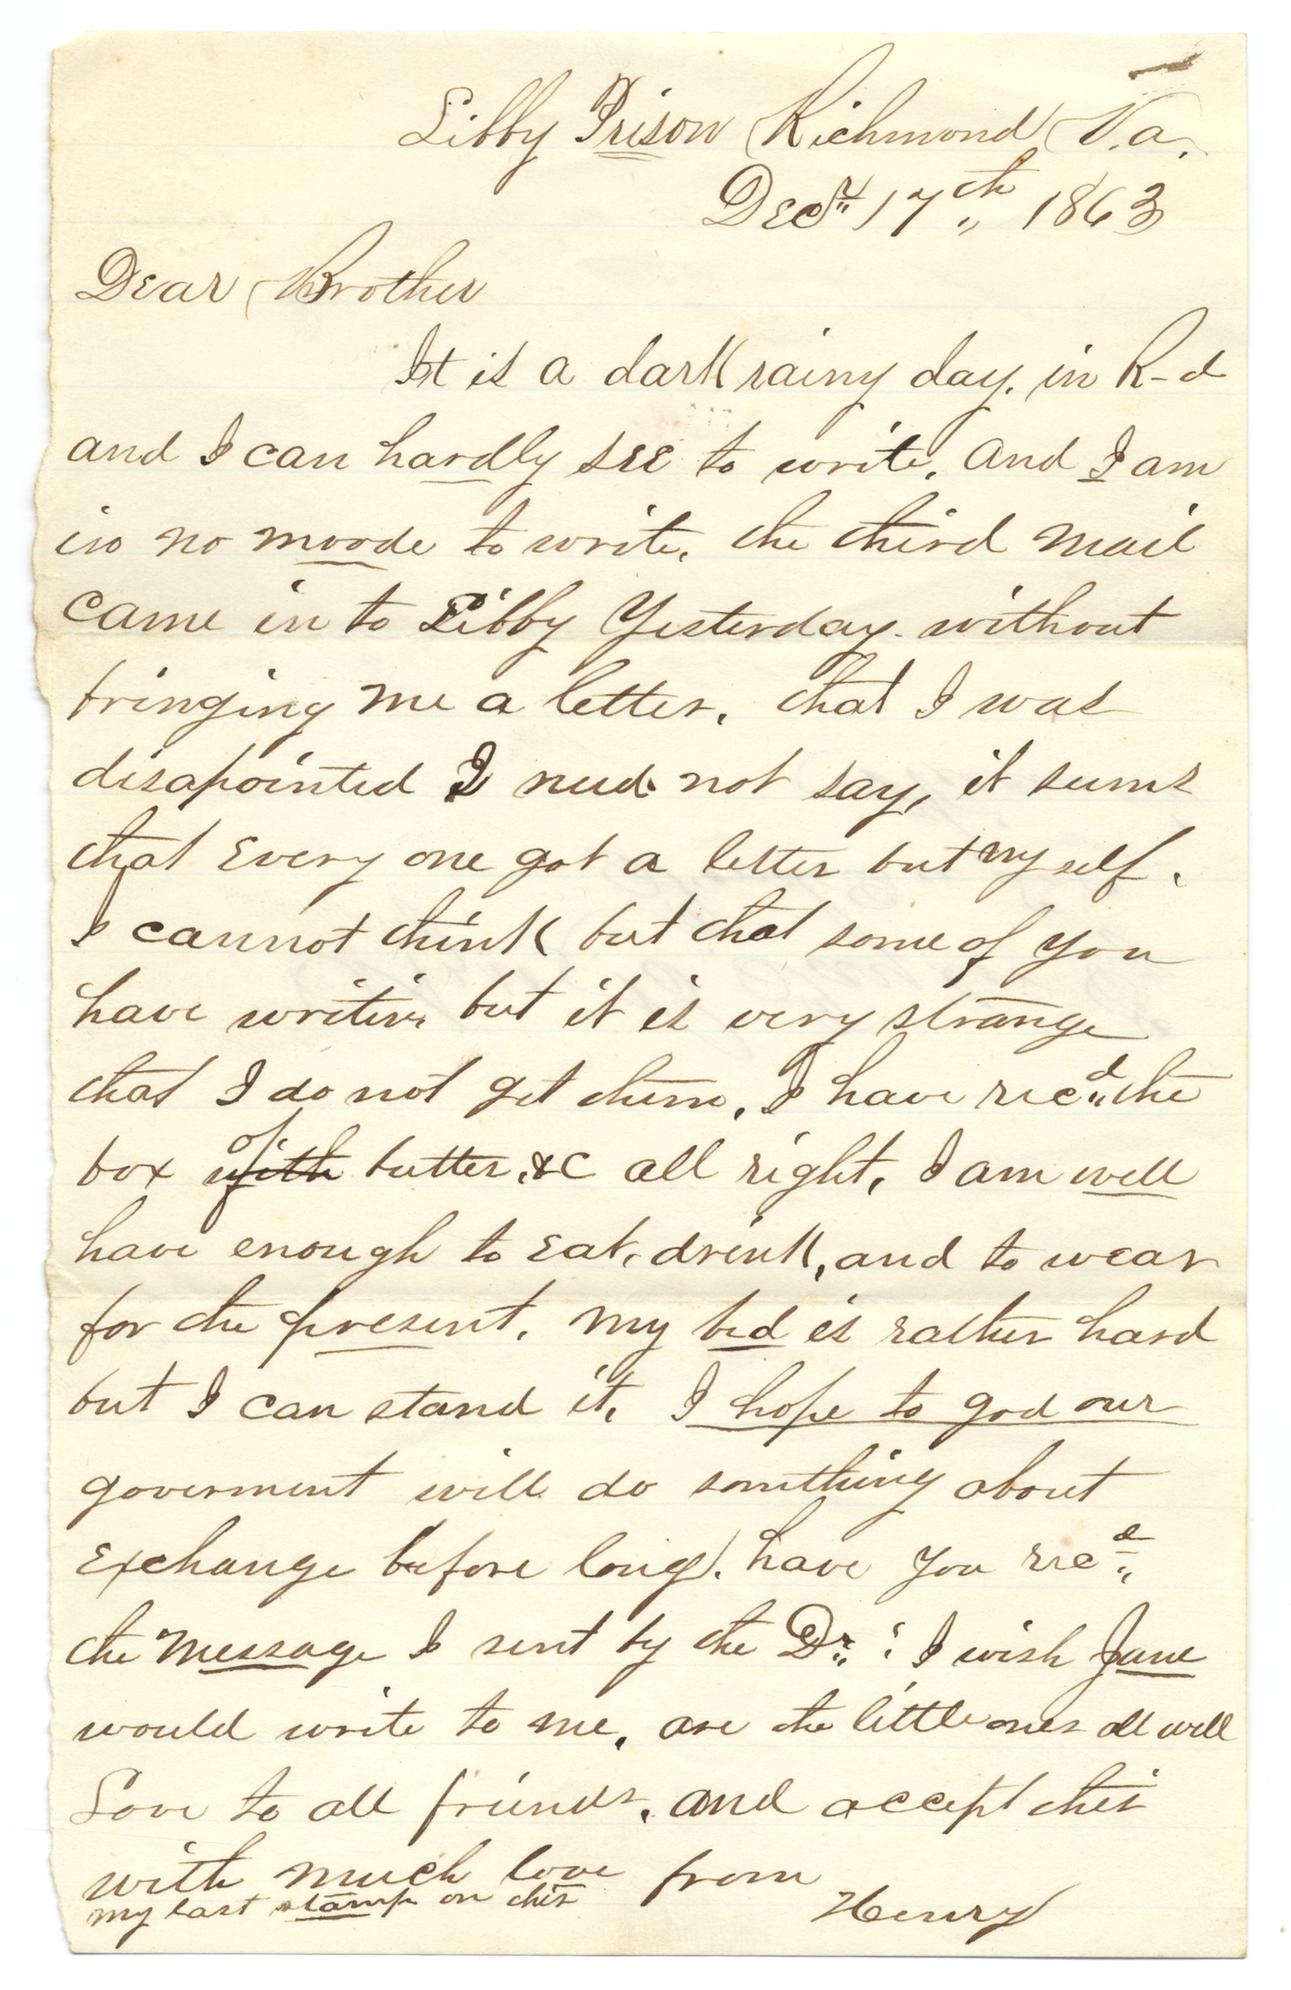 Libby Prison Richmond Va.
Decr 17th 1863
Dear Brother
It is a dark rainy day. in R-d
and I can hardly see to write. and I am
in no moode to write. the third mail
came in to Libby Yesterday. without
bringing me a letter. that I was
disapointed I need not say, it seems
that every one got a letter but my self.
I cannot think but that some of you
have writen but it is very strange
that I do not get them. I have recd the
box with of butter &c all right. I am well
have enough to eat, drink, and to wear
for the present. My bed is rather hard
but I can stand it. I hope to god our
goverment will do something about
exchange before long. have you recd
the message I sent by the Dr. I wish Jane
would write to me. are the little ones all well
Love to all friends. and accept this
with much love from
my last stamp on this
Henry